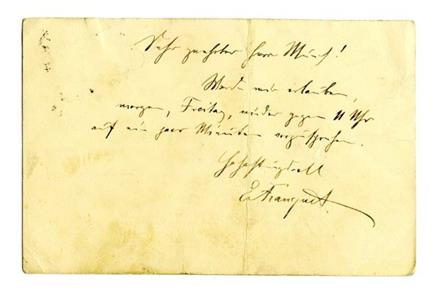 Sehr geehrter Herr Münch!
Werde mir erlauben,
morgen, Freitag, wieder gegen 11 Uhr
auf ein paar Minuten vorzusprechen.
Hochachtungsvoll